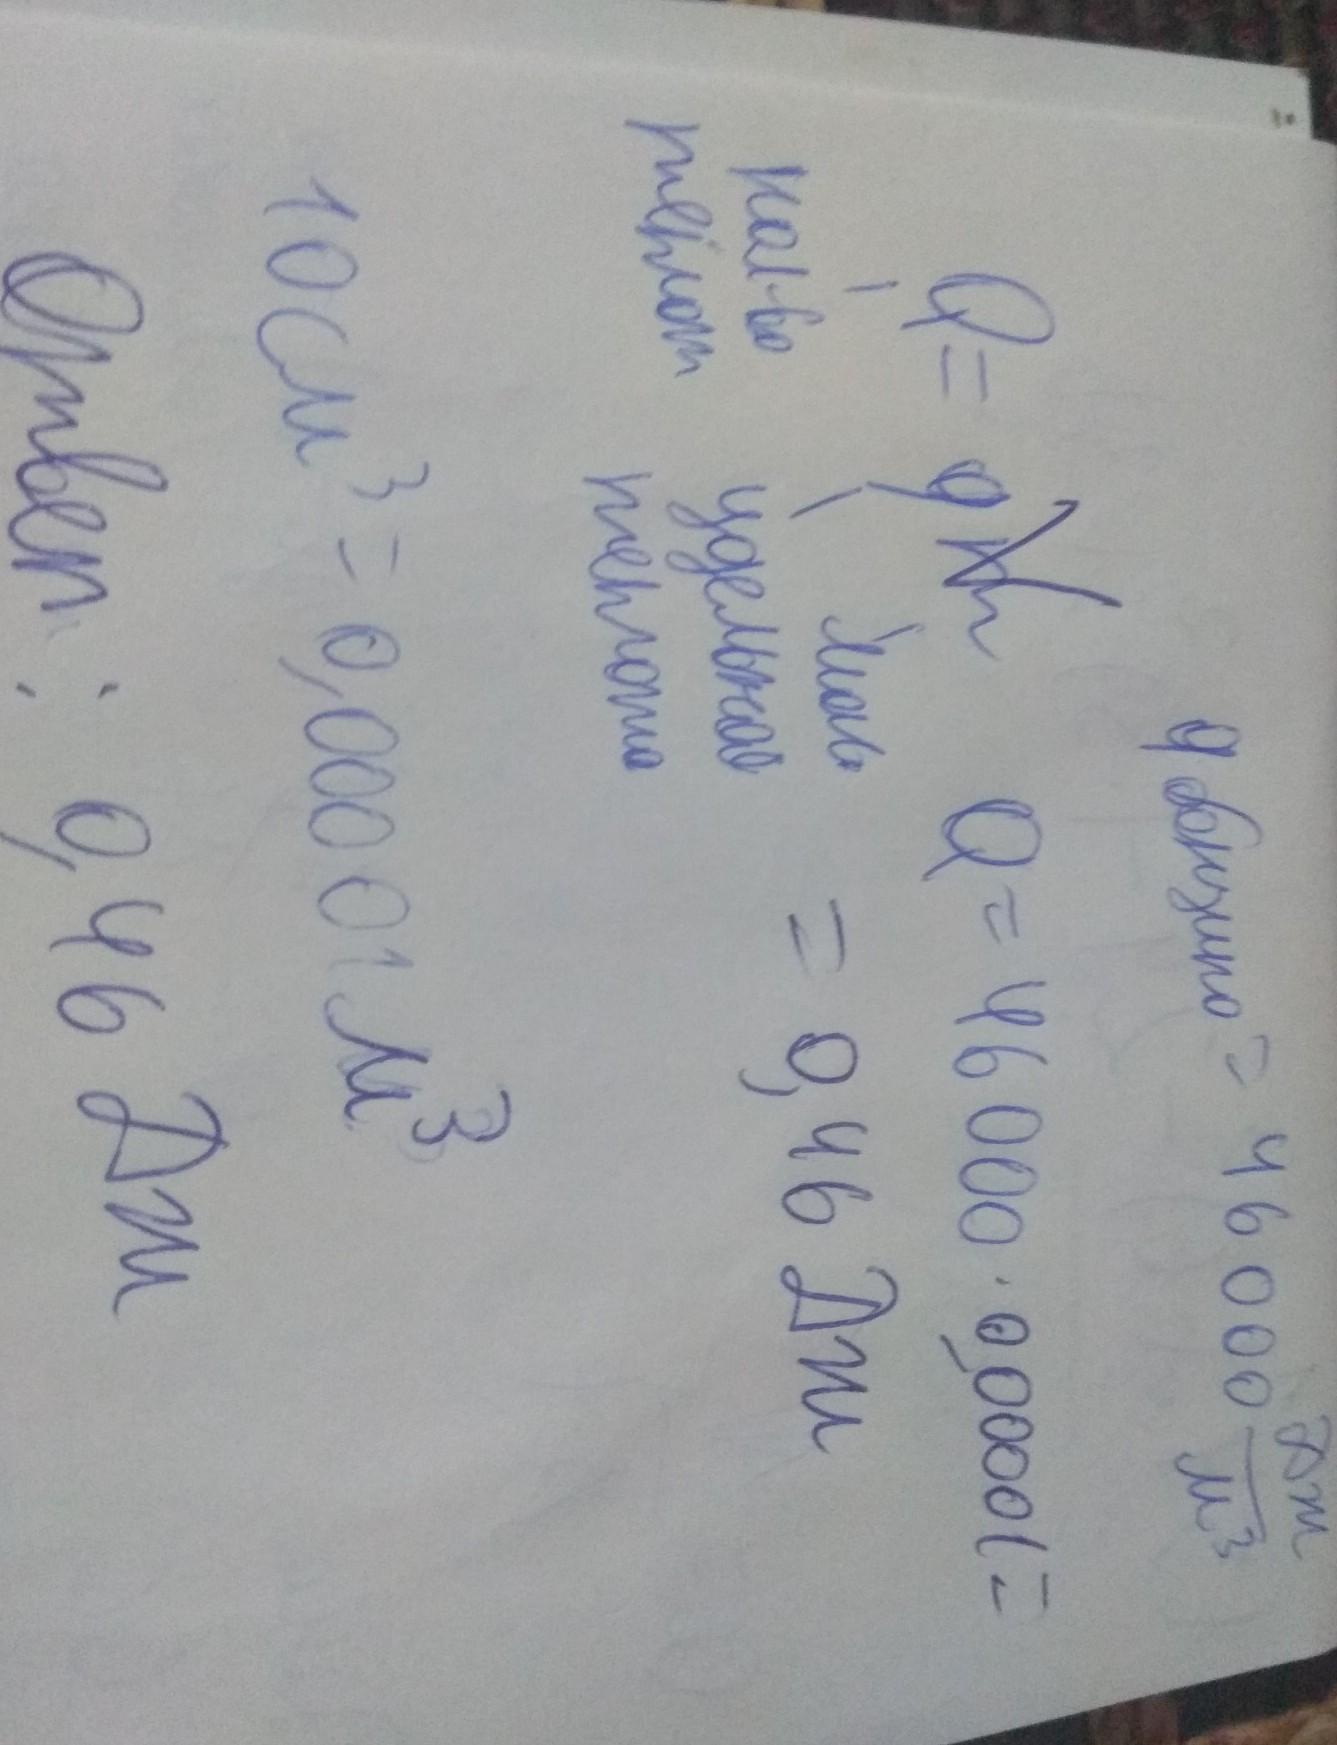 q бензина = 46000 Дж/м³
Q = qm Q = 46000 · 0,00001 =
кол-во
теплот
удельная
теплота
= 0,46 Дж
10см³ = 0,00001 м³
Ответ: 0,46 Дж